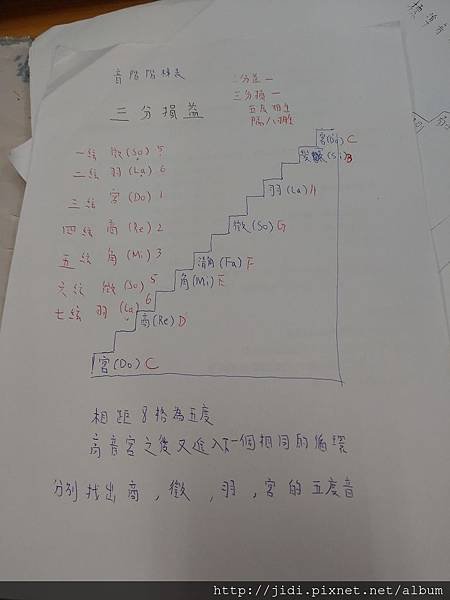 音階階梯表
三分益一
三分損一
五度相生
隔八相生
三分損益
一絃 徵(So) 5
二絃 羽(La) 6
三絃 宮(Do) 1
四絃 商(Re) 2
五絃 角(Mi) 3
六絃 徵(So) 5
七絃 羽(La) 6
宮(Do) C
變宮(Si) B
羽(La) A
徵(So) G
清角(Fa) F
角(Mi) E
商(Re) D
宮(Do) C
相距8格為五度
高音宮之後又進入下一個相同的循環
分別找出商,徵,羽,宮的五度音
http://jidi.pixnet.net/album